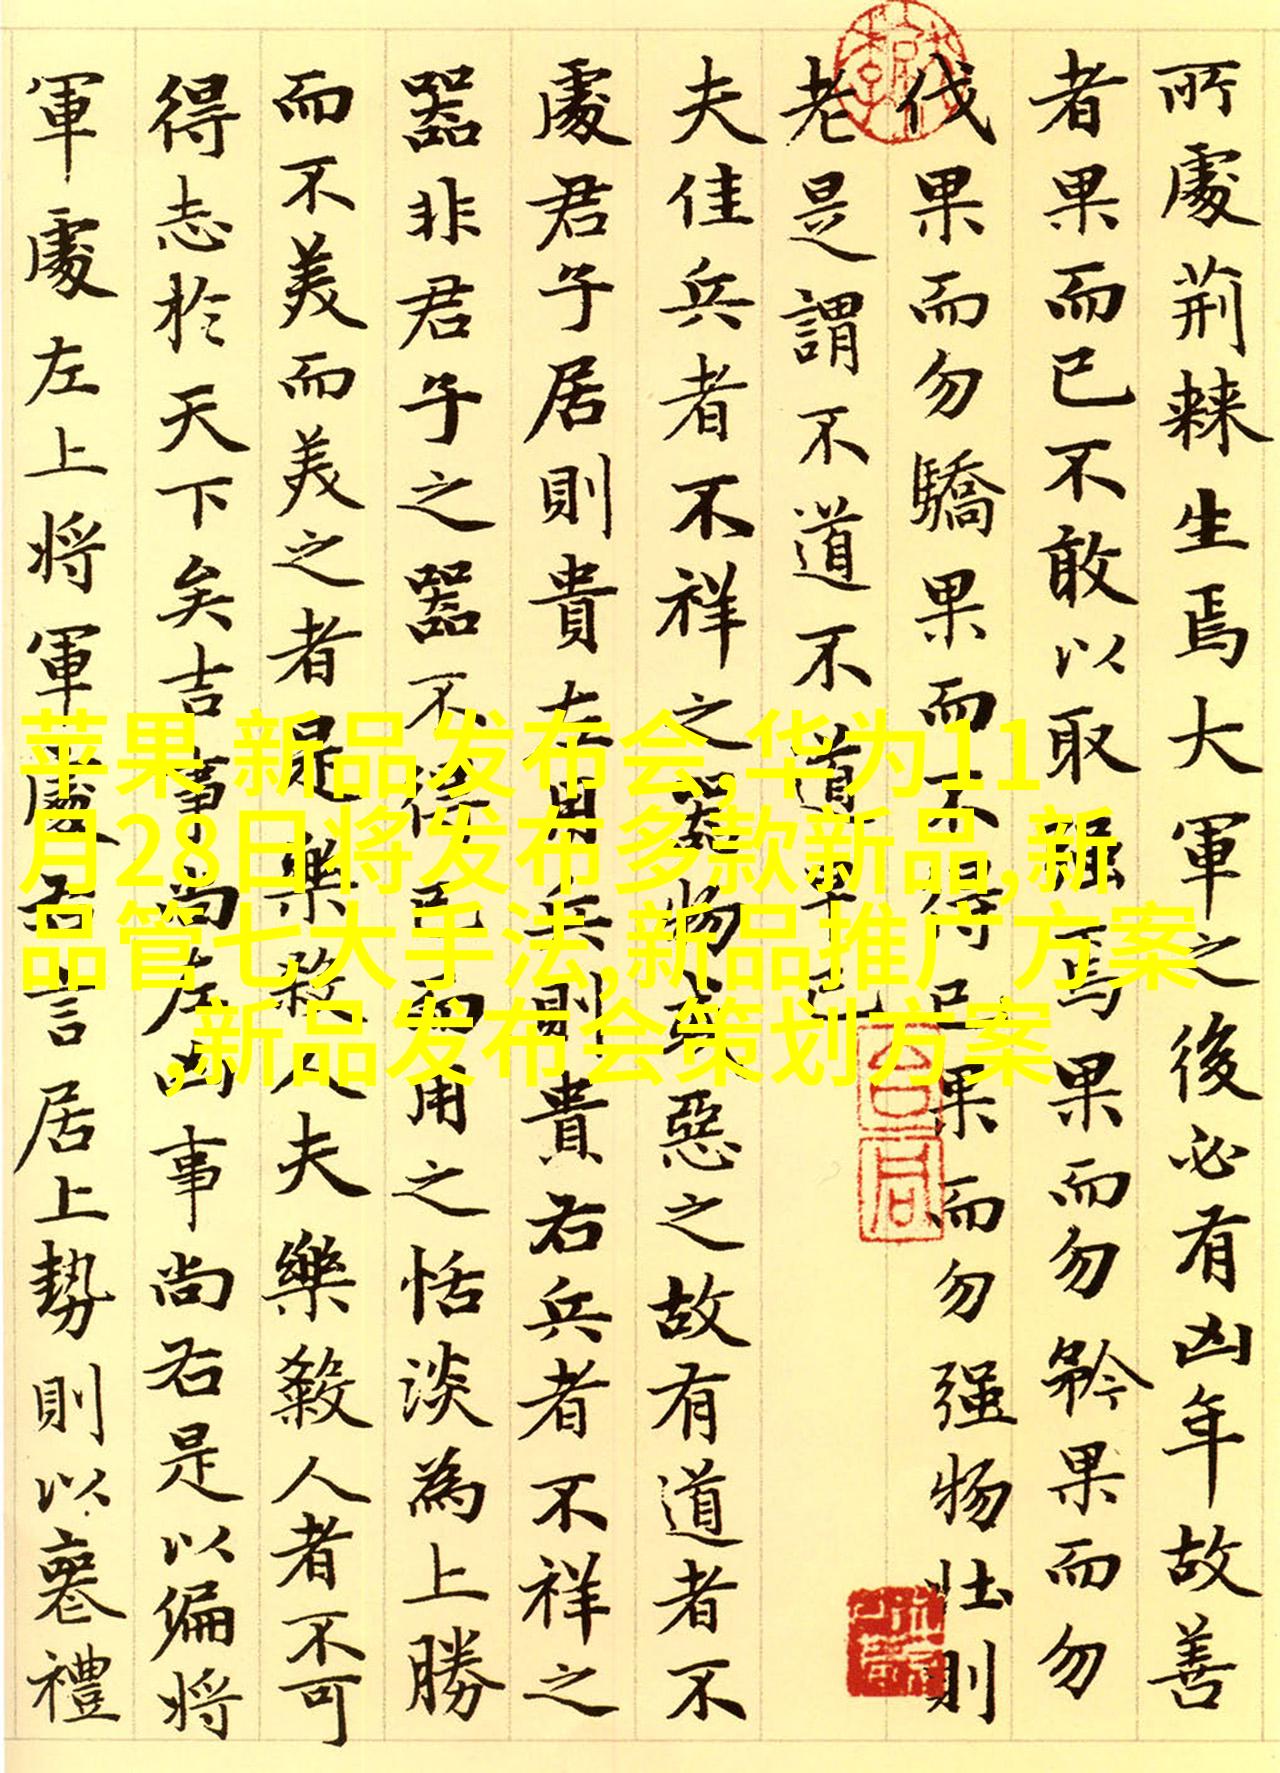 所處荆棘生焉大軍之後必有凶年故善
者果而已不敢以取强焉果而勿矜果而勿
伐果而勿驕果而不得已果而勿强物壮則
老是謂不道不道早已
夫佳兵者不祥之器物或惡之故有道者不
處君子居則貴左用兵則貴右兵者不祥之
器非君子之器不得已而用之恬淡為上勝
而不美而美之者是樂殺人夫樂殺人者不可
得志於天下矣吉事尚左凶事尚右是以偏將
軍處左上將軍處右言居上勢則以喪禮
苹果 新品发布会,华为11
月28日将发布多款新品,新
品管七大手法,新品推广方案
,新品发布会策划方案